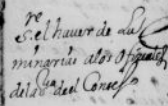 re
s. el haver de Lu
minarias a los Offiçiales
de la Sa de el Conse